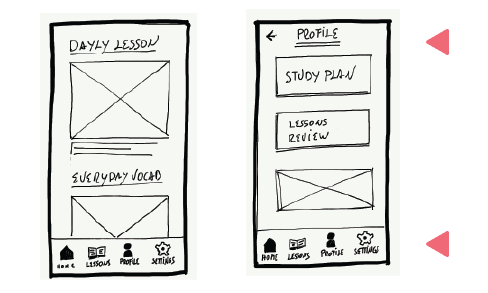 DAYLY LESSON
EVERYDAY VOCAB
HOME LESSONS PROFILE SETTINGS
PROFILE
STUDY PLAN
LESSONS
REVIEW
HOME LESSONS PROFILE SETTINGS